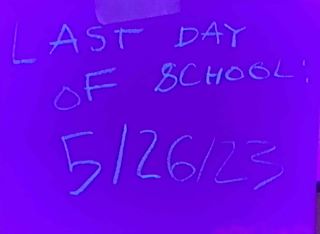 LAST DAY
OF SCHOOL:
5/26/23